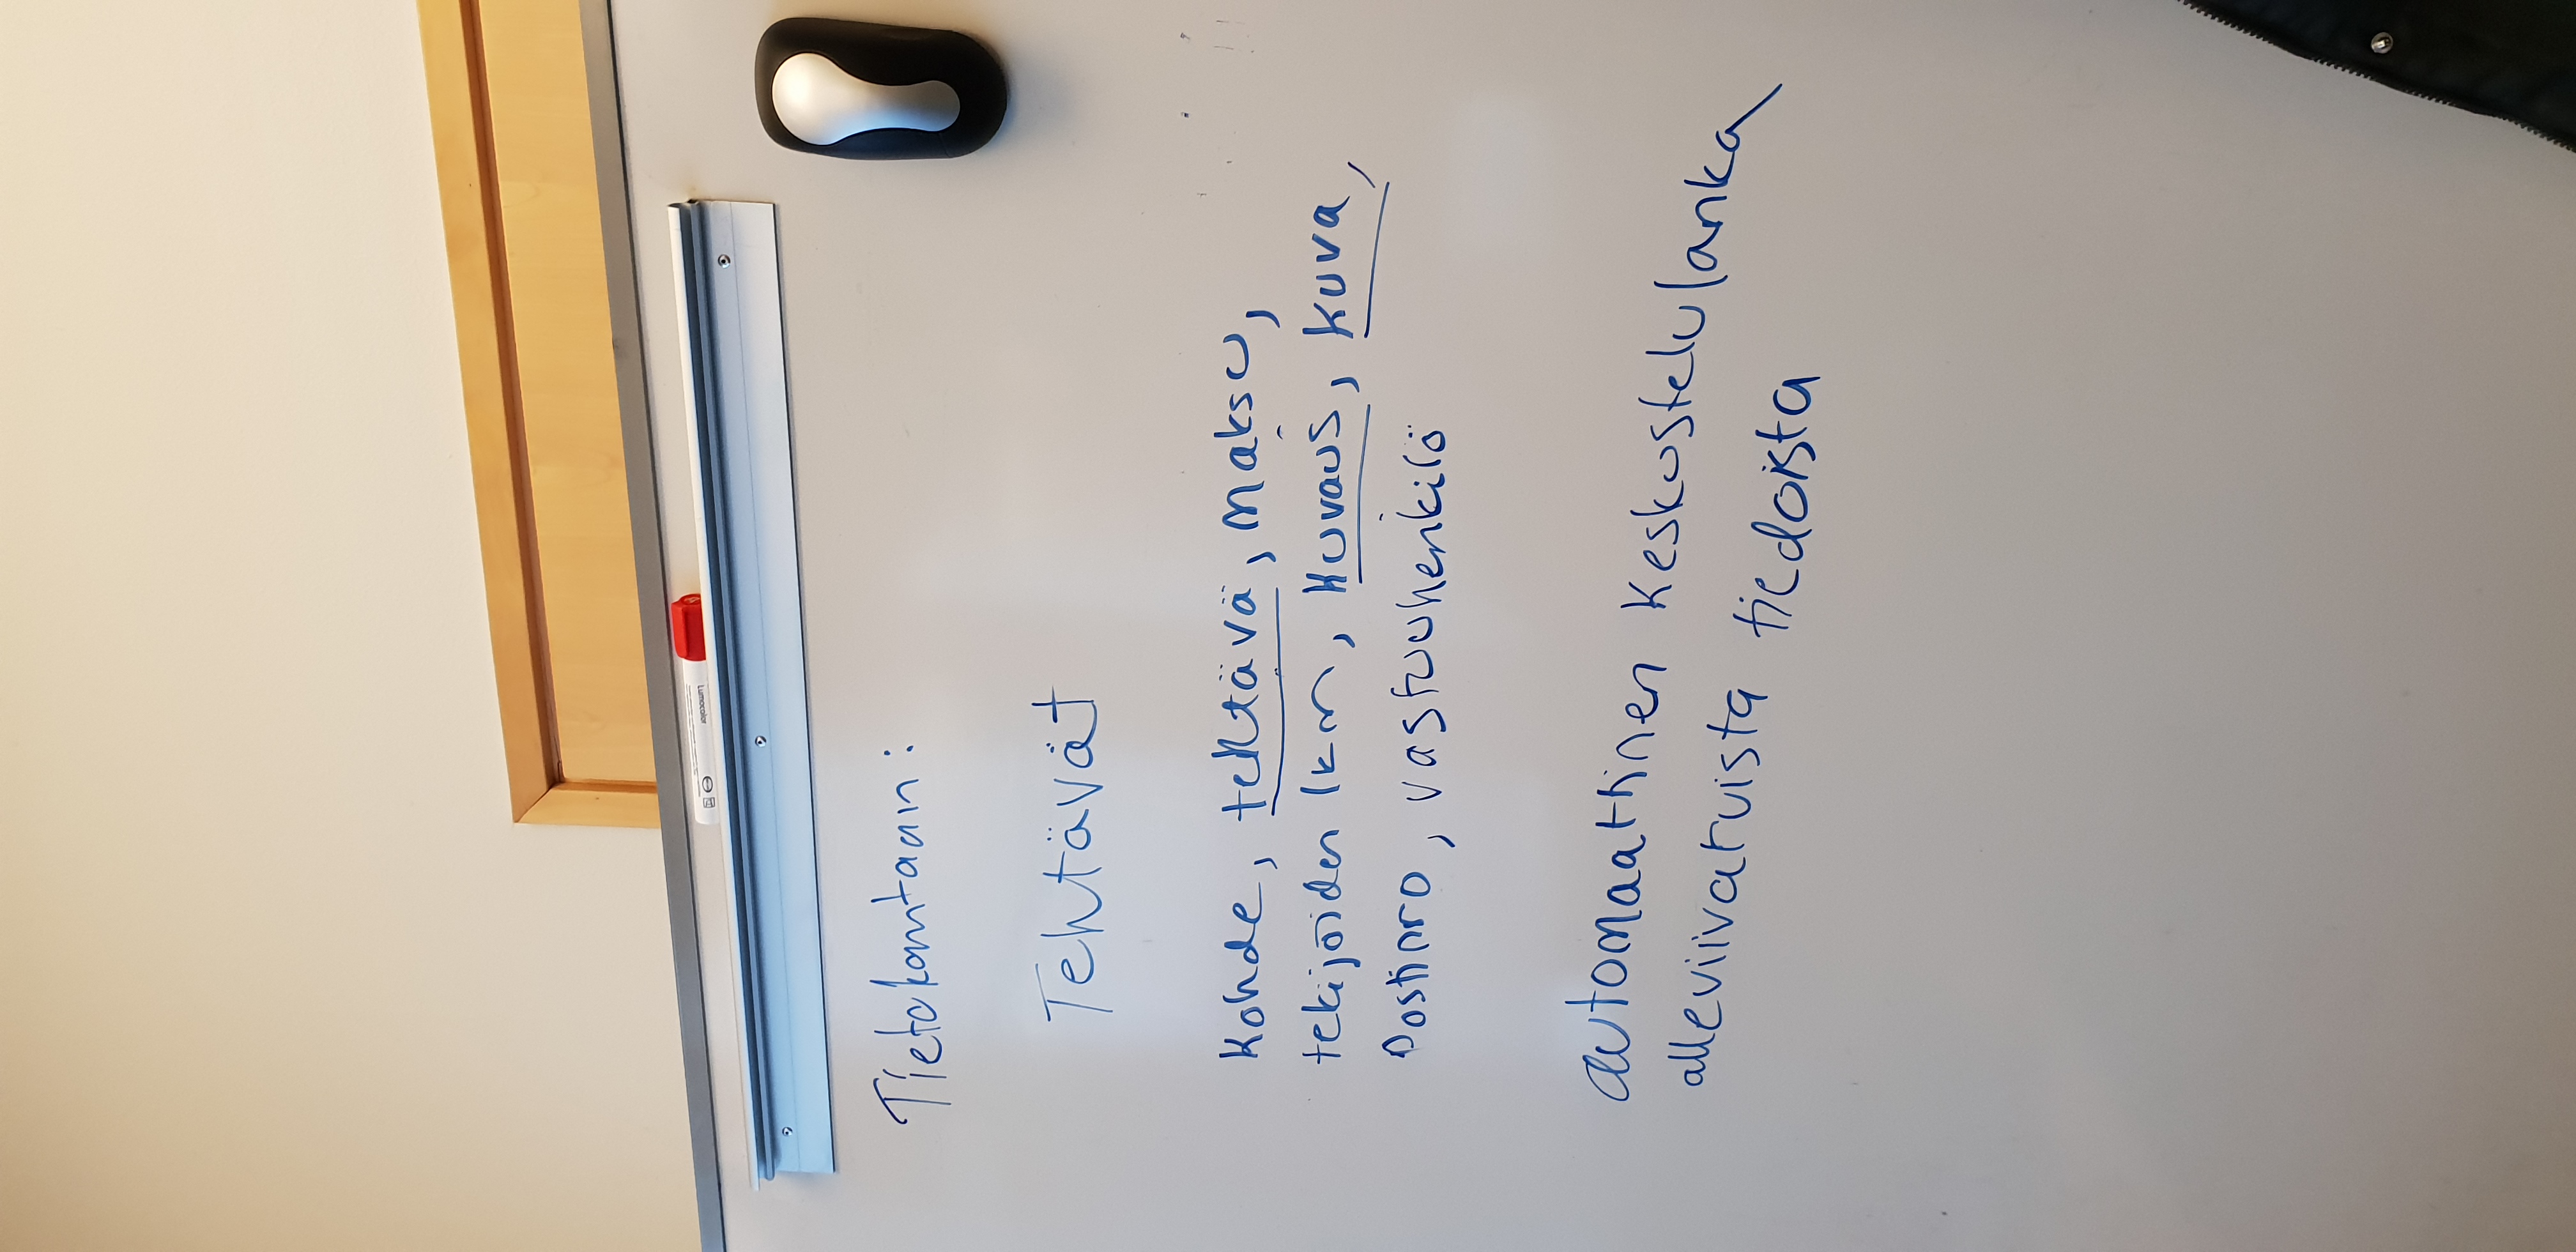 Lumocolor
Tietokantaan:
Tehtävät
Kohde, tehtävä, maksu,
tekijöiden lkm, kuvaus, kuva,
Postinro, vastuuhenkilö
automaattinen keskustelulanka
alleviivatuista tiedoista